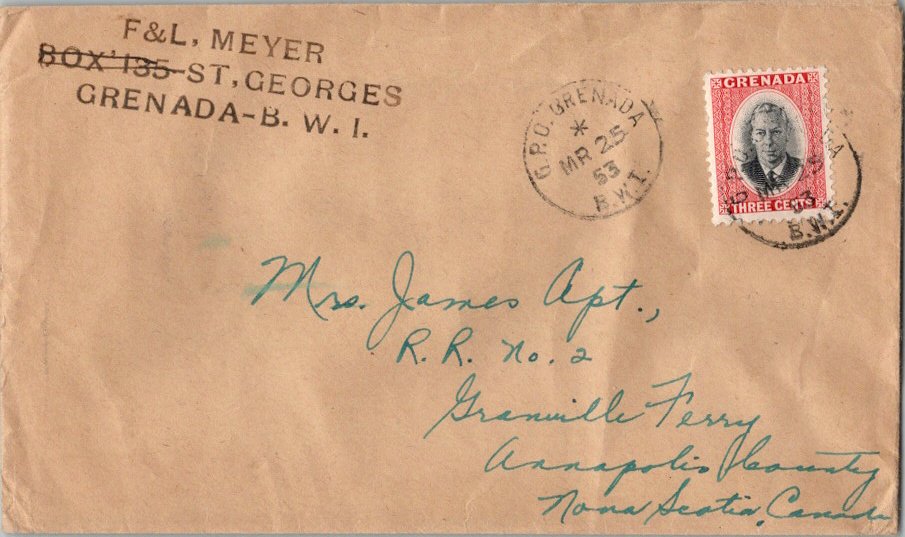 F&L, MEYER
BOX' 135 ST, GEORGES
GRENADA-B. W. I.
G.P.O. GRENADA
*
MR 25
53
B.W.I.
GRENADA
THREE CENTS
G.P.O. GRENADA
MR 25
53
B.W.I.
Mrs. James Apt.,
R. R. No. 2
Granville Ferry
Annapolis County
Nova Scotia, Canada